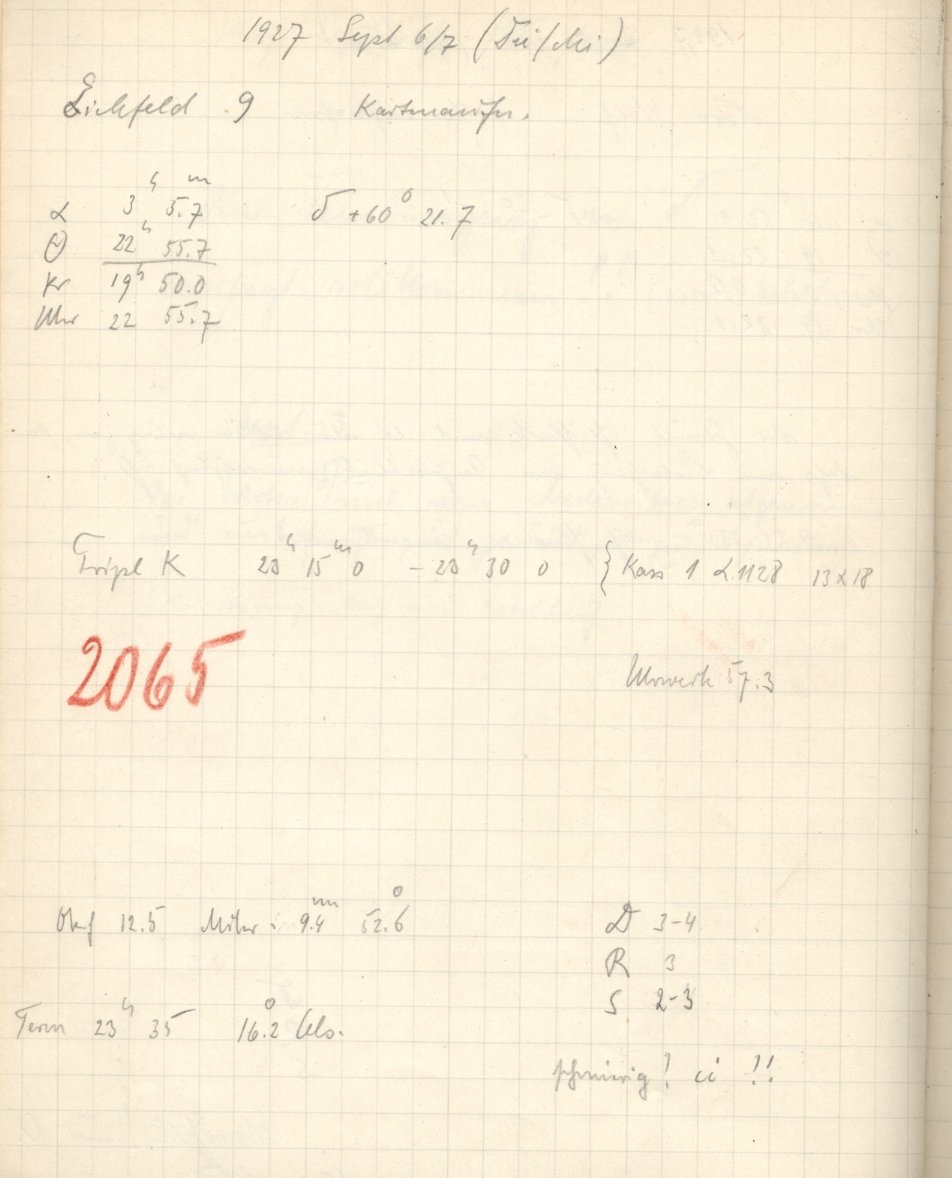 1927 Sept 6/7 (Di/Mi)
Eichfeld 9 Kartenaufn.
h m
α 3 5.7 δ +60° 21.7
Θ 22h 55.7
Kr 19h 50.0
Uhr 22 55.7
Tripl K 23h 15m 0 – 23h 30 0 { Kass 1 α.1128 13x18
2065
Uhrwerk 57.3
Okf 12.5 Mikr. 9.4mm 52.6°
D 3-4
R 3
S 2-3
Term 23h 35 16.2° Cels.
schmierig! ci !!